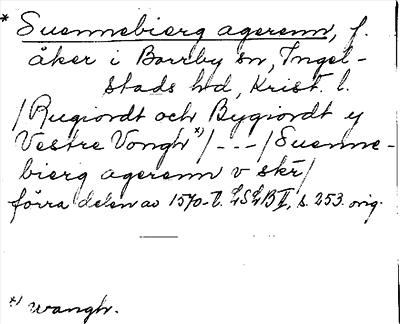 * Suennebierg agerenn, f.
åker i Borrby sn, Ingel-
stads hd, Krist. l.
/Rugiordt och Bygiordt ej
Vestre Vongh *)/ - - - /Suenne-
bierg agerenn v skr/
förra delen av 1570-t. LSLB II, s. 253. orig.
*) wangh.